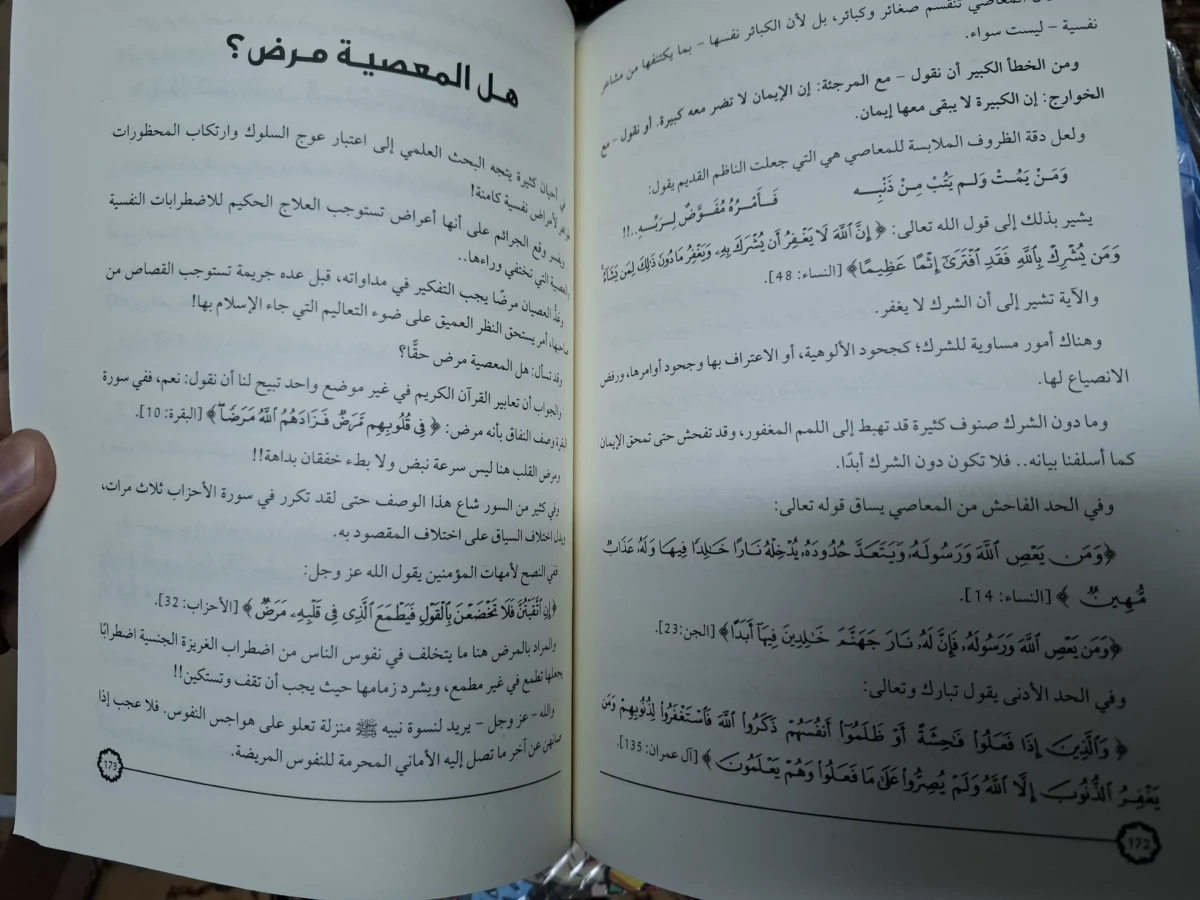 المعاصي تنقسم صغائر وكبائر، بل لأن الكبائر نفسها – بما يكتنفها من مشاعر
نفسية – ليست سواء.
ومن الخطأ الكبير أن نقول – مع المرجئة: إن الإيمان لا تضر معه كبيرة. أو نقول – مع
الخوارج: إن الكبيرة لا يبقى معها إيمان.
ولعل دقة الظروف الملابسة للمعاصي هي التي جعلت الناظم القديم يقول:
وَمَنْ يَمُتْ وَلم يَتُبْ مِنْ ذَنْبِـه فَـأَمْرُهُ مُفَوَّضٌ لِـرَبِّـهِ..!!
يشير بذلك إلى قول الله تعالى: ﴿ إِنَّ ٱللَّهَ لَا يَغْفِرُ أَن يُشْرَكَ بِهِۦ وَيَغْفِرُ مَا دُونَ ذَٰلِكَ لِمَن يَشَآءُ ۚ
وَمَن يُشْرِكْ بِٱللَّهِ فَقَدِ ٱفْتَرَىٰٓ إِثْمًا عَظِيمًا ﴾ [النساء: 48].
والآية تشير إلى أن الشرك لا يغفر.
وهناك أمور مساوية للشرك؛ كجحود الألوهية، أو الاعتراف بها وجحود أوامرها، ورفض
الانصياع لها.
وما دون الشرك صنوف كثيرة قد تهبط إلى اللمم المغفور، وقد تفحش حتى تمحق الإيمان
كما أسلفنا بيانه.. فلا تكون دون الشرك أبدًا.
وفي الحد الفاحش من المعاصي يساق قوله تعالى:
﴿وَمَن يَعْصِ ٱللَّهَ وَرَسُولَهُۥ وَيَتَعَدَّ حُدُودَهُۥ يُدْخِلْهُ نَارًا خَٰلِدًا فِيهَا وَلَهُۥ عَذَابٌ
مُّهِينٌ ﴾ [النساء: 14].
﴿وَمَن يَعْصِ ٱللَّهَ وَرَسُولَهُۥ فَإِنَّ لَهُۥ نَارَ جَهَنَّمَ خَٰلِدِينَ فِيهَآ أَبَدًا﴾ [الجن:23].
وفي الحد الأدنى يقول تبارك وتعالى:
﴿ وَٱلَّذِينَ إِذَا فَعَلُوا۟ فَٰحِشَةً أَوْ ظَلَمُوٓا۟ أَنفُسَهُمْ ذَكَرُوا۟ ٱللَّهَ فَٱسْتَغْفَرُوا۟ لِذُنُوبِهِمْ وَمَن
يَغْفِرُ ٱلذُّنُوبَ إِلَّا ٱللَّهُ وَلَمْ يُصِرُّوا۟ عَلَىٰ مَا فَعَلُوا۟ وَهُمْ يَعْلَمُونَ ﴾ [آل عمران: 135].
172
هل المعصية مرض؟
في أحيان كثيرة يتجه البحث العلمي إلى اعتبار عوج السلوك وارتكاب المحظورات
لأمراض نفسية كامنة!
ويفسر وقع الجرائم على أنها أعراض تستوجب العلاج الحكيم للاضطرابات النفسية
والعصبية التي تختفي وراءها..
وعدُّ العصيان مرضًا يجب التفكير في مداواته، قبل عده جريمة تستوجب القصاص من
صاحبها، أمر يستحق النظر العميق على ضوء التعاليم التي جاء الإسلام بها!
وقد تسأل: هل المعصية مرض حقًّا؟
والجواب أن تعابير القرآن الكريم في غير موضع واحد تبيح لنا أن نقول: نعم، ففي سورة
البقرة وصف النفاق بأنه مرض: ﴿ فِى قُلُوبِهِم مَّرَضٌ فَزَادَهُمُ ٱللَّهُ مَرَضًا ۖ﴾ [البقرة: 10].
ومرض القلب هنا ليس سرعة نبض ولا بطء خفقان بداهة!!
وفي كثير من السور شاع هذا الوصف حتى لقد تكرر في سورة الأحزاب ثلاث مرات،
ويدل اختلاف السياق على اختلاف المقصود به.
ففي النصح لأمهات المؤمنين يقول الله عز وجل:
﴿إِنِ ٱتَّقَيْتُنَّ فَلَا تَخْضَعْنَ بِٱلْقَوْلِ فَيَطْمَعَ ٱلَّذِى فِى قَلْبِهِۦ مَرَضٌ ﴾ [الأحزاب: 32].
والمراد بالمرض هنا ما يتخلف في نفوس الناس من اضطراب الغريزة الجنسية اضطرابًا
يجعلها تطمع في غير مطمع، ويشرد زمامها حيث يجب أن تقف وتستكين!!
والله – عز وجل – يريد لنسوة نبيه ﷺ منزلة تعلو على هواجس النفوس. فلا عجب إذا
صانهن عن آخر ما تصل إليه الأماني المحرمة للنفوس المريضة.
173